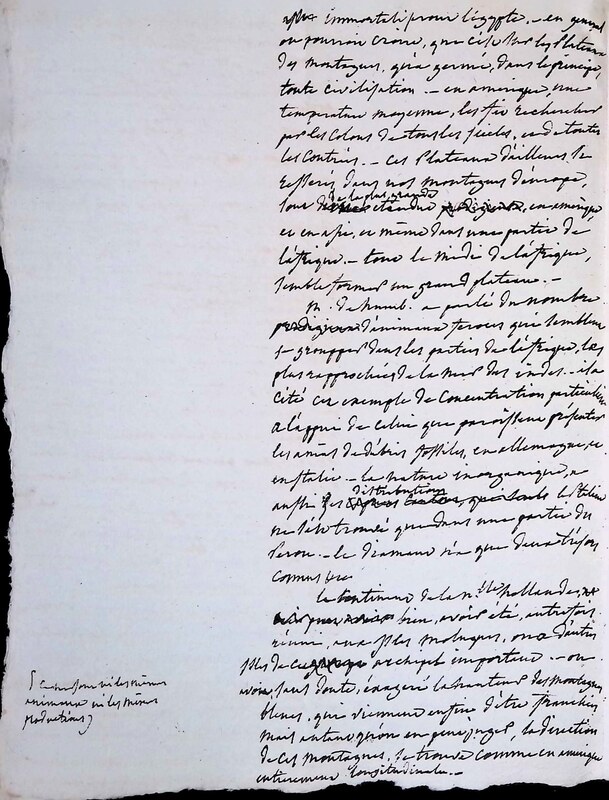 immortalisé pour l'égypte. - en general
on pourroit croire, que c'est sur les plateaux
des montagnes, qu'a germé, dans le principe,
toute civilisation. - en amérique, une
temperature moyenne, les fit rechercher
par les colons de tous les siecles, et de toutes
les contrées. - ces plateaux d'ailleurs, si
resserrés dans nos montagnes d'europe,
sont de la plus grande étendue en amérique
et en asie, et même dans une partie de
l'afrique. - tout le midi de l'afrique,
semble former un grand plateau. -
M. de humb. a parlé du nombre
prodigieux d'animaux feroces qui semblent
se groupper dans les parties de l'afrique, les
plus rapprochées de la mer des indes. - il a
cité cet exemple de concentration particuliere
a l'appui de celui que paroissent présenter
les amas de débris fossiles, en allemagne, et
en italie - la nature inorganique, a
aussi ses distributions
ne s'est trouvé que dans une partie du
Perou. - le diamant n'a que deux
connus
le continent de la n.lle hollande,
bien, avoir été, autrefois
réuni, aux isles moluques, ou a d'autres
isles de archipel important - on
avoit, sans doute, exagéré la hauteur des montagnes
bleues, qui viennent enfin d'être franchies
mais autant qu'on en peut juger, la direction
de ces montagnes, se trouve comme en amérique
entierement longitudinale. -
les mêmes
animaux ni les mêmes
productions)